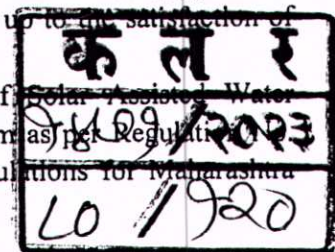 up to the satisfaction of
क ल र
f Solar Assisted Water
/२०२३
m as per Regulation
ulations for Maharashtra
८०/१२०